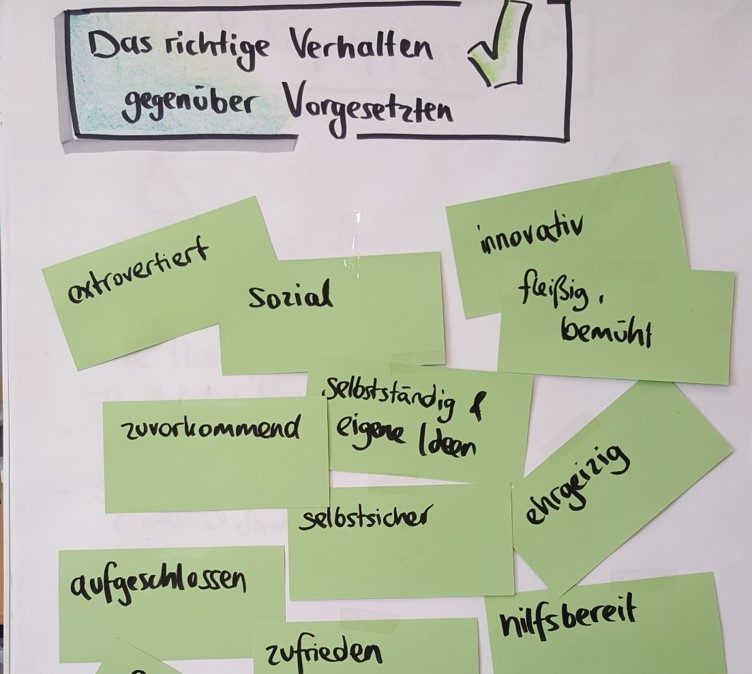 Das richtige Verhalten
gegenüber Vorgesetzten
extrovertiert
sozial
innovativ
fleißig,
bemüht
zuvorkommend
selbstständig &
eigene Ideen
ehrgeizig
selbstsicher
aufgeschlossen
hilfsbereit
zufrieden